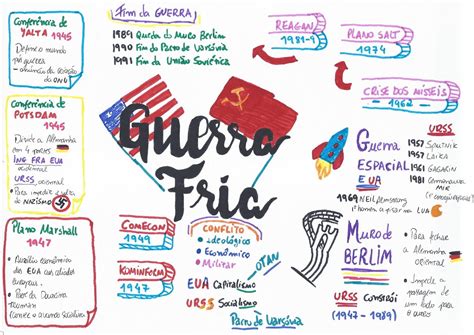 Conferência de
YALTA 1945
Define o mundo
pós guerra
ONU
Conferência de
POTSDAM
1945
Divide a Alemanha
em 4 partes
ING FRA EUA
ocidental
URSS oriental
Para impedir a volta
do NAZISMO
Plano Marshall
1947
Auxílio econômico
dos EUA aos aliados
europeus.
Truman
Fim da GUERRA
1989 Queda do Muro Berlim
1990 Fim do Pacto de Varsóvia
1991 Fim da União Soviética
Guerra
Fria
REAGAN
1981-9
PLANO SALT
1974
CRISE DOS MÍSSEIS
1962
Guerra
ESPACIAL
EUA
1969 NEIL Armstrong
1º homem a pisar na LUA
URSS
1957 Sputnik
1957 Laika
1961 GAGARIN
1981
MIR
COMECON
1949
KOMINFORM
1947
CONFLITO
ideológico
Econômico
Militar
OTAN
EUA Capitalismo
URSS Socialismo
Pacto de Varsóvia
Muro de
BERLIM
URSS constrói
Para fechar
a Alemanha
oriental
Impede a
passagem de
um lado para
o outro